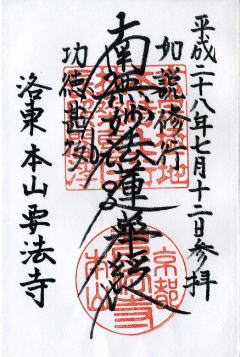 平成二十八年七月十二日参拝
如説修行
南無妙法蓮華経
功徳甚多
洛東本山要法寺
京都